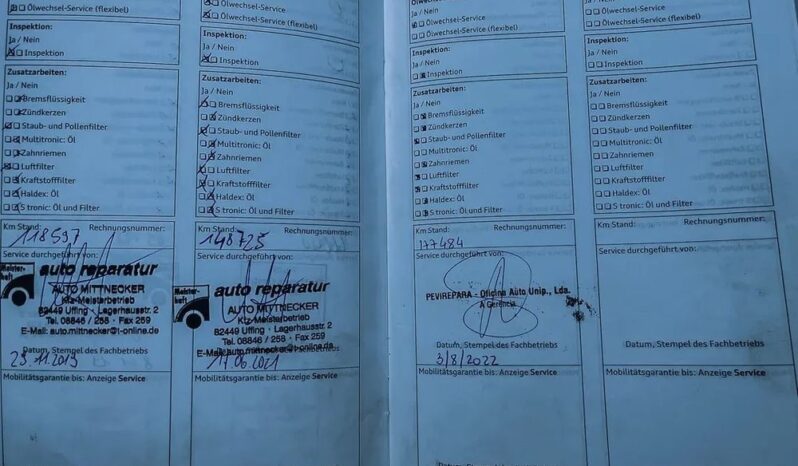 Ölwechsel-Service (flexibel)
Inspektion:
Ja / Nein
Inspektion
Zusatzarbeiten:
Ja / Nein
Bremsflüssigkeit
Zündkerzen
Staub- und Pollenfilter
Multitronic: Öl
Zahnriemen
Luftfilter
Kraftstofffilter
Haldex: Öl
S tronic: Öl und Filter
Km Stand: Rechnungsnummer:
118597
Service durchgeführt von:
Meister-
haft
auto reparatur
AUTO MITTNECKER
Kfz-Meisterbetrieb
82449 Uffing - Lagerhausstr. 2
Tel. 08846 / 258 - Fax 259
E-Mail: auto.mittnecker@t-online.de
Datum, Stempel des Fachbetriebs
Mobilitätsgarantie bis: Anzeige Service
Ölwechsel-Service
Ölwechsel-Service (flexibel)
Inspektion:
Ja / Nein
Inspektion
Zusatzarbeiten:
Ja / Nein
Bremsflüssigkeit
Zündkerzen
Staub- und Pollenfilter
Multitronic: Öl
Zahnriemen
Luftfilter
Kraftstofffilter
Haldex: Öl
S tronic: Öl und Filter
Km Stand: Rechnungsnummer:
148725
Service durchgeführt von:
Meister-
haft
auto reparatur
AUTO MITTNECKER
Kfz-Meisterbetrieb
82449 Uffing - Lagerhausstr. 2
Tel. 08846 / 258 - Fax 259
E-Mail: auto.mittnecker@t-online.de
Mobilitätsgarantie bis: Anzeige Service
Ölwechsel-Service
Ölwechsel-Service (flexibel)
Inspektion:
Ja / Nein
Inspektion
Zusatzarbeiten:
Ja / Nein
Bremsflüssigkeit
Zündkerzen
Staub- und Pollenfilter
Multitronic: Öl
Zahnriemen
Luftfilter
Kraftstofffilter
Haldex: Öl
S tronic: Öl und Filter
Km Stand: Rechnungsnummer:
177484
Service durchgeführt von:
PEVIREPARA - Oficina Auto Unip., Lda.
A Gerência
Datum, Stempel des Fachbetriebs
3/8/2022
Mobilitätsgarantie bis: Anzeige Service
Ölwechsel-Service (flexibel)
Inspektion:
Ja / Nein
Inspektion
Zusatzarbeiten:
Ja / Nein
Bremsflüssigkeit
Zündkerzen
Staub- und Pollenfilter
Multitronic: Öl
Zahnriemen
Luftfilter
Kraftstofffilter
Haldex: Öl
S tronic: Öl und Filter
Km Stand: Rechnungsnummer:
Service durchgeführt von:
Datum, Stempel des Fachbetriebs
Mobilitätsgarantie bis: Anzeige Service